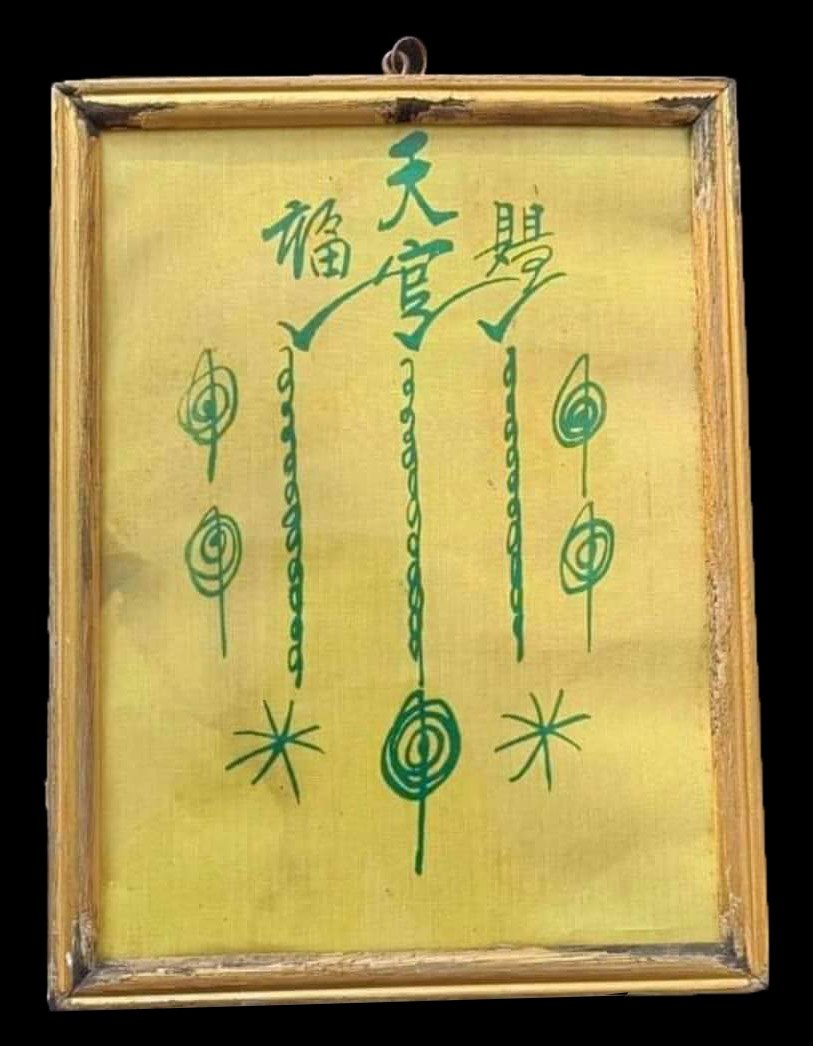 天官
賜
福